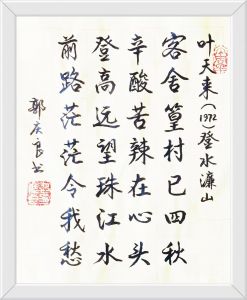 叶天来(1972)登水濂山
客舍篁村已四秋
辛酸苦辣在心头
登高远望珠江水
前路茫茫令我愁
郭庆良书